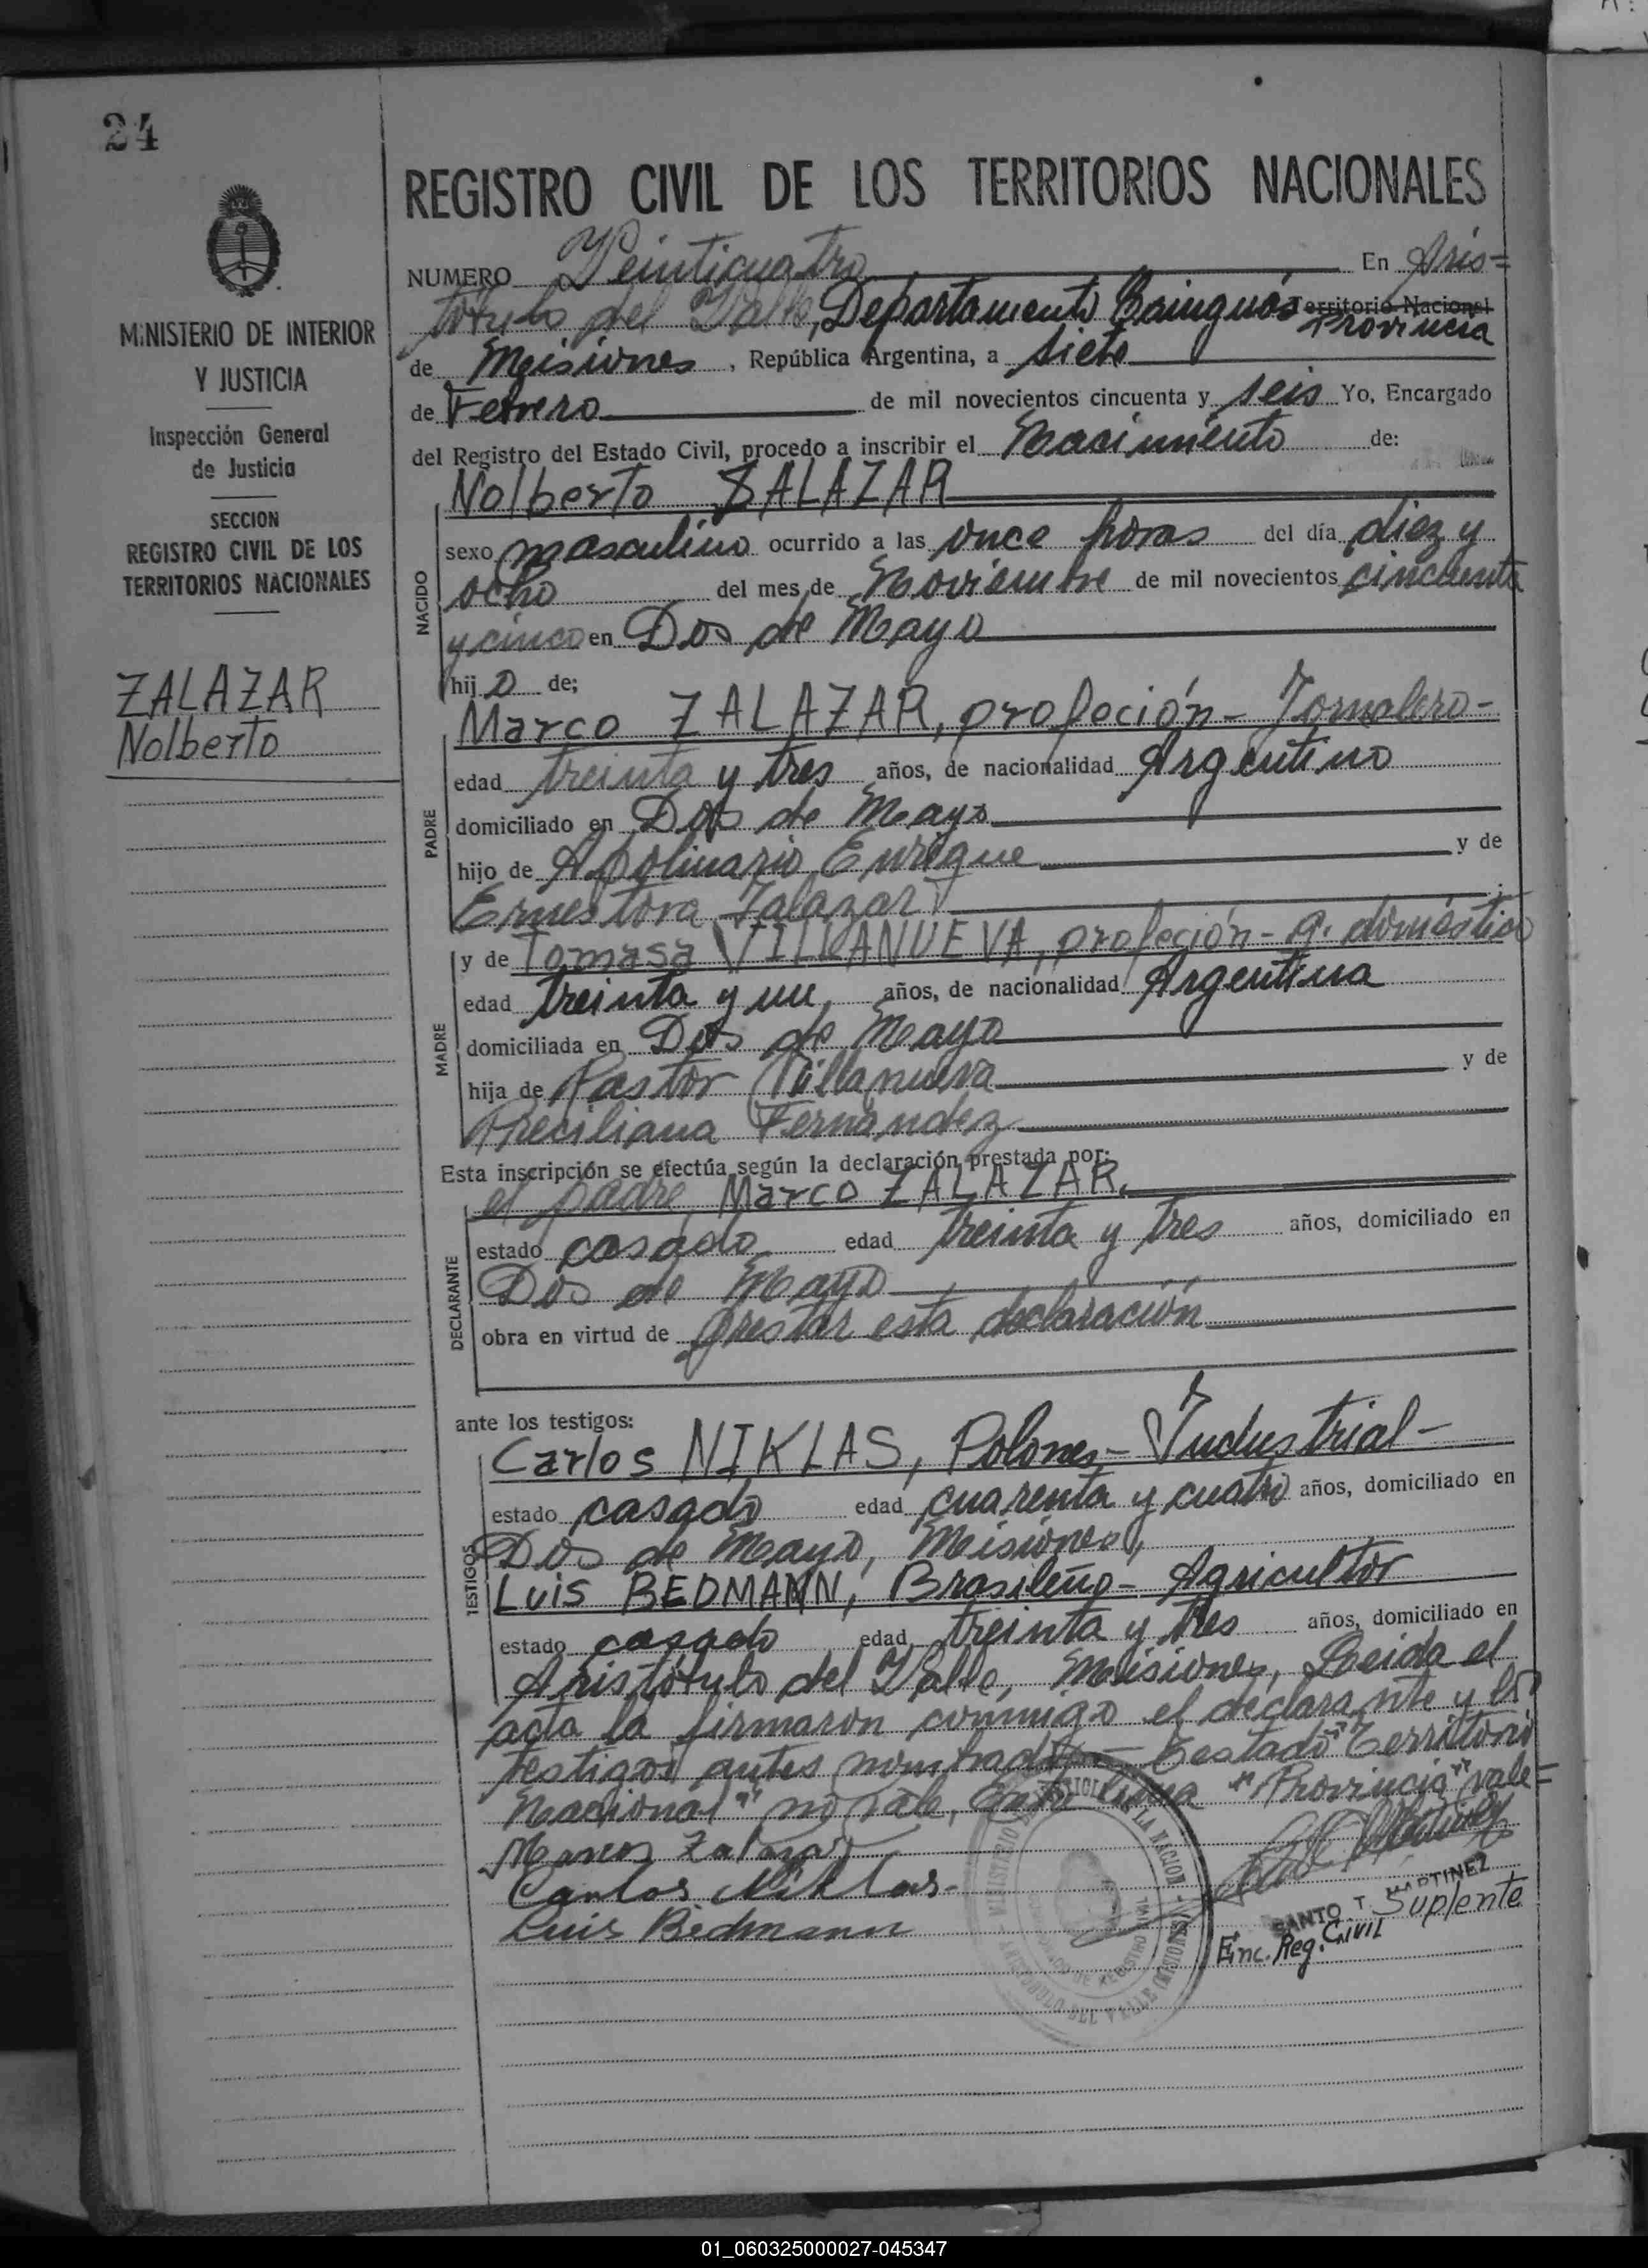 24
MINISTERIO DE INTERIOR
Y JUSTICIA
Inspección General
de Justicia
SECCION
REGISTRO CIVIL DE LOS
TERRITORIOS NACIONALES
ZALAZAR
Nolberto
REGISTRO CIVIL DE LOS TERRITORIOS NACIONALES
NUMERO Veinticuatro En Aris=
tótulo del Valle, Departamento Cainguás Territorio Nacional Provincia
de Misiones, República Argentina, a siete
de Febrero de mil novecientos cincuenta y seis Yo, Encargado
del Registro del Estado Civil, procedo a inscribir el Nacimiento de:
Nolberto ZALAZAR
NACIDO
sexo masculino ocurrido a las once horas del día diez y
ocho del mes de Noviembre de mil novecientos cincuenta
y cinco en Dos de Mayo
hijo de;
Marco ZALAZAR, profeción - Jornalero-
PADRE
edad treinta y tres años, de nacionalidad Argentino
domiciliado en Dos de Mayo
hijo de Apolinario Enrique y de
Ernestora Zalazar;
y de Tomasa VILLANUEVA, profeción - q. doméstico
MADRE
edad treinta y un, años, de nacionalidad Argentina
domiciliada en Dos de Mayo
hija de Pastor Villanueva y de
Preciliana Fernández
Esta inscripción se efectúa según la declaración prestada por:
el padre, Marco ZALAZAR,
DECLARANTE
estado casado edad treinta y tres años, domiciliado en
Dos de Mayo
obra en virtud de prestar esta declaración
ante los testigos:
Carlos NIKLAS, Polones - Industrial -
TESTIGOS
estado casado edad cuarenta y cuatro años, domiciliado en
Dos de Mayo, Misiones,
Luis BEDMANN, Brasileño - Agricultor
estado casado edad treinta y tres años, domiciliado en
Aristótulo del Valle, Misiones, Leida el
acta la firmaron conmigo el declarante y los
testigos antes nombrados - Testado "Territorio
Nacional" no vale, Entre linea "Provincia" vale=
Marcos Zalazar
Carlos Niklas.
Luis Bedmann
SANTO T. MARTINEZ
Suplente
Enc. Reg. CIVIL
01_060325000027-045347